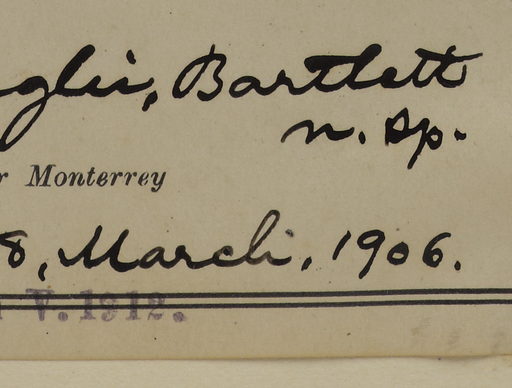 Bartlett
n. sp.
Monterrey
8, March, 1906.
V. 1912.